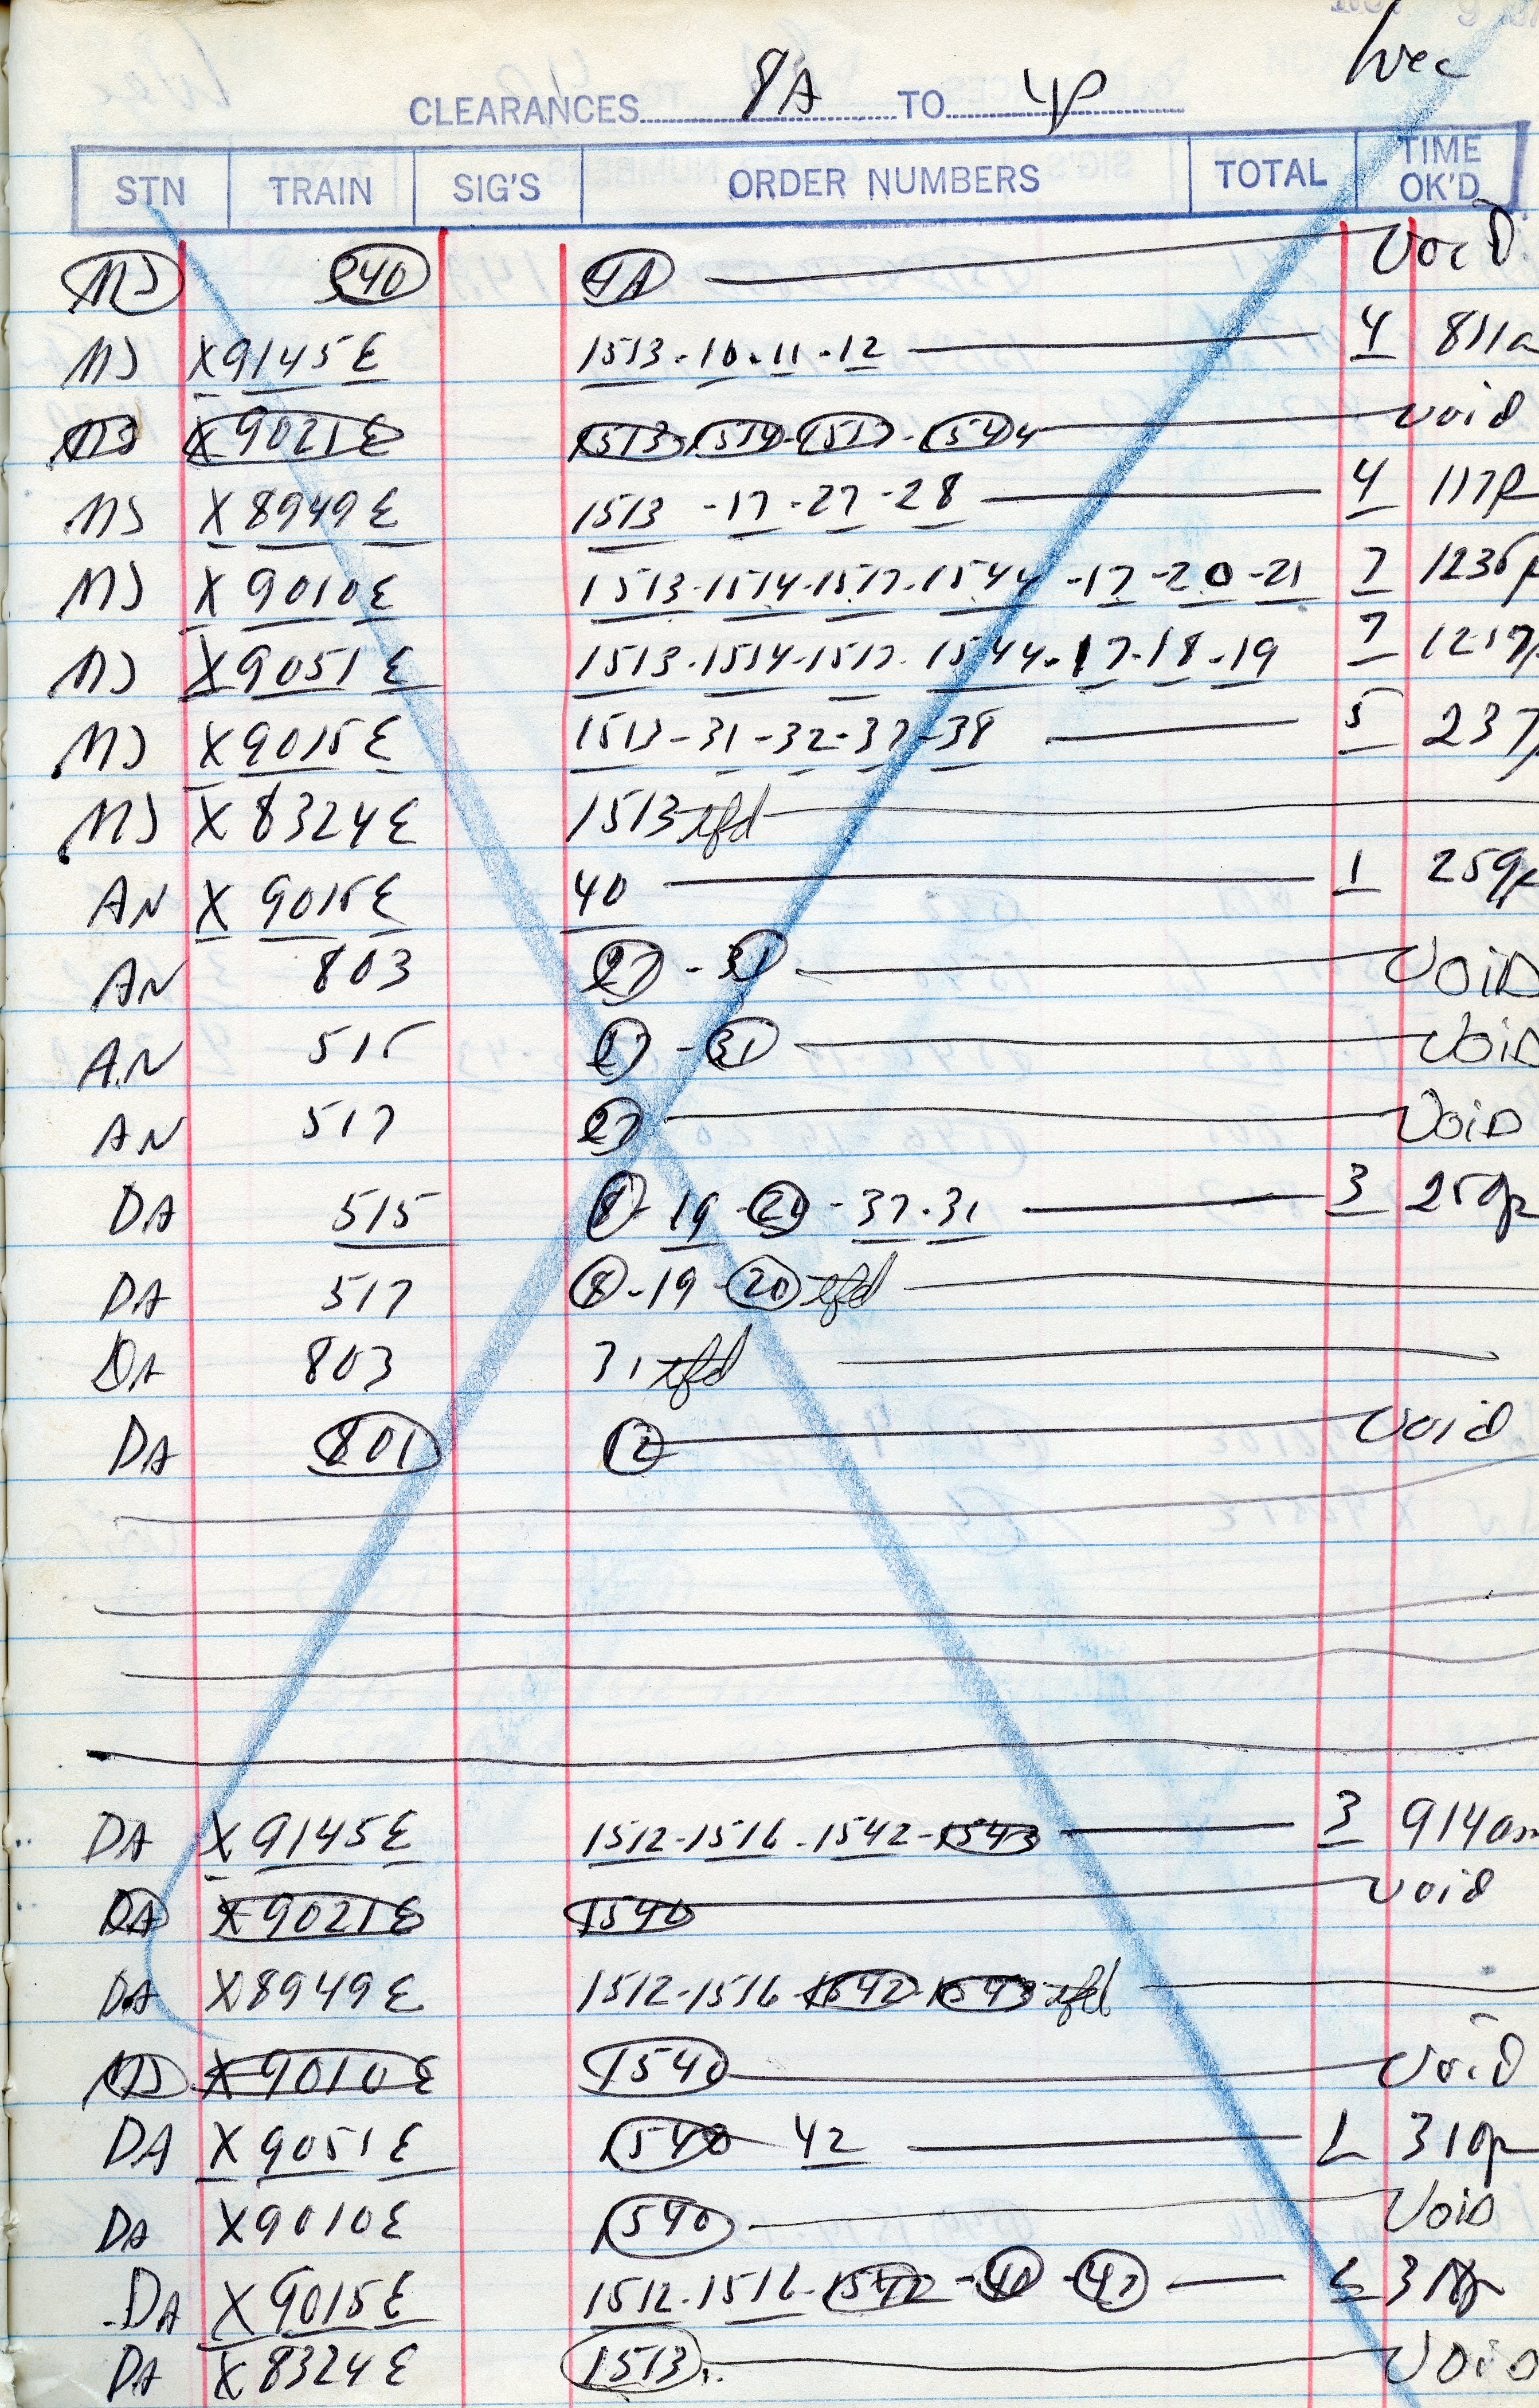 Wec
CLEARANCES 8A TO 4P
STN TRAIN SIG'S ORDER NUMBERS TOTAL TIME OK'D
MJ 840 4A VOID
MJ X9145E 1513-10-11-12 4 811a
MJ X9021E 1513-1514-1517-1544 void
MJ X8949E 1513-17-27-28 4 117p
MJ X9010E 1513-1514-1517-1544-17-20-21 7 1236p
MJ X9051E 1513-1514-1517-1544-17-18-19 7 1217p
MJ X9015E 1513-31-32-37-38 5 237p
MJ X8324E 1513 tfd
AN X9015E 40 1 259p
AN 803 27-31 VOID
AN 515 27-31 VOID
AN 517 27 VOID
DA 515 8-19-20-37-31 3 259p
DA 517 8-19-20 tfd
DA 803 31 tfd
DA 801 12 void
DA X9145E 1512-1516-1542-1543 3 914am
DA X9021E 1540 void
DA X8949E 1512-1516-1542-1543 tfd
MJ X9010E 1540 VOID
DA X9051E 1540 42 310p
DA X9010E 1540 VOID
DA X9015E 1512-1516-1542
DA X8324E 1513 VOID